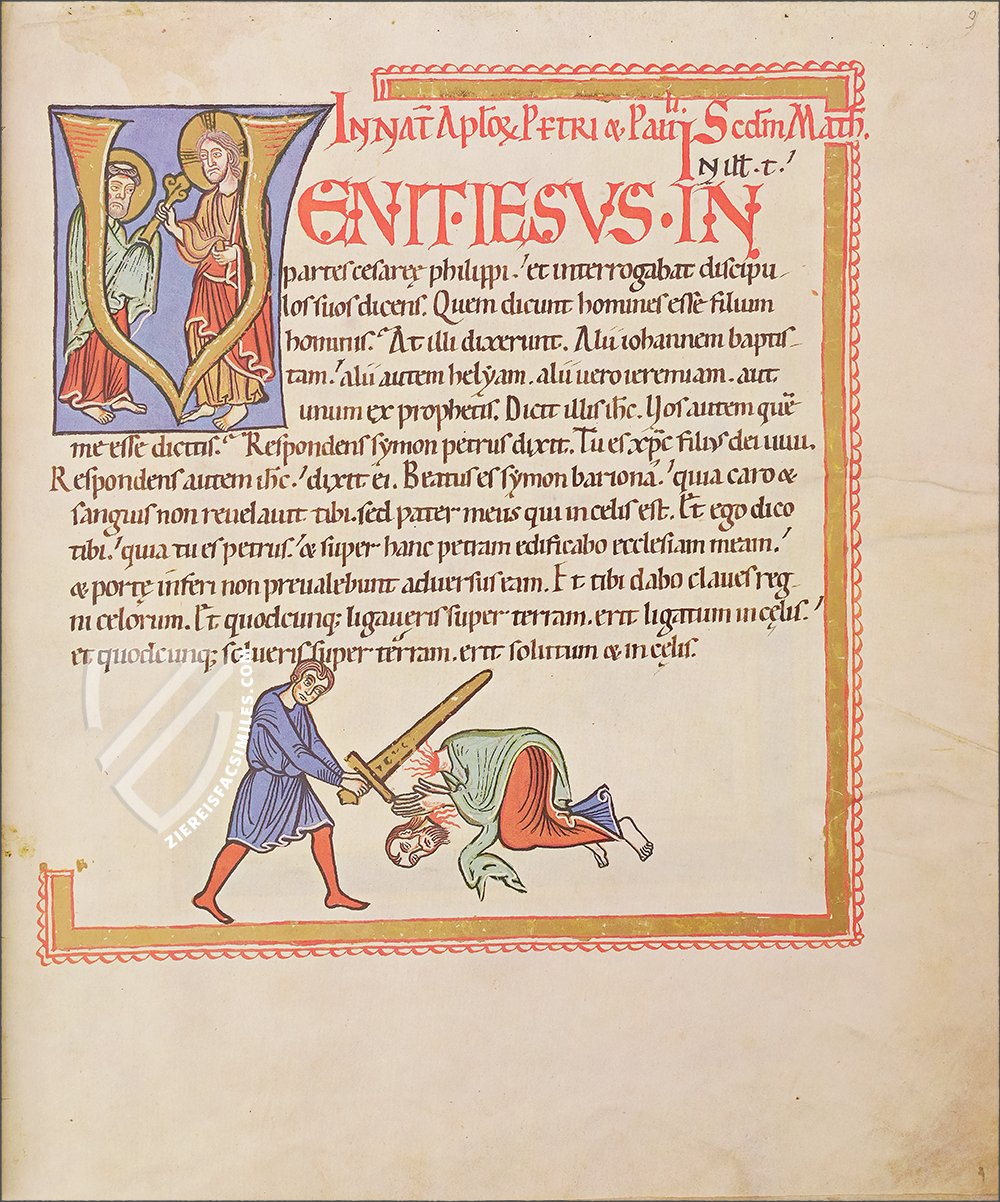 9
IN NAT̄ APL̄OꝜ PETRI & PAULI Scdm̄ Math̄.
IN ILL̄. T.
VENIT · IESVS · IN
partes cesaręe philippi. et interrogabat discipu
los suos dicens. Quem dicunt homines esse filium
hominis. At illi dixerunt. Alii iohannem baptis-
tam. alii autem helyam. alii uero ieremiam. aut
unum ex prophetis. Dicit illis ihc̄. Uos autem quē
me esse dicitis. Respondens symon petrus dixit. Tu es xp̄c filius dei uiui.
Respondens autem ihc̄. dixit ei. Beatus es symon bariona. quia caro &
sanguis non reuelauit tibi. sed pater meus qui in celis est. Et ego dico
tibi. quia tu es petrus. & super hanc petram edificabo ecclesiam meam.
& portę inferi non preualebunt aduersus eam. Et tibi dabo claues reg-
ni celorum. Et quodcunq; ligaueris super terram. erit ligatum in cęlis.
et quodcunq; solueris super terram. erit solutum & in cęlis.
ZIEREISFACSIMILES.COM